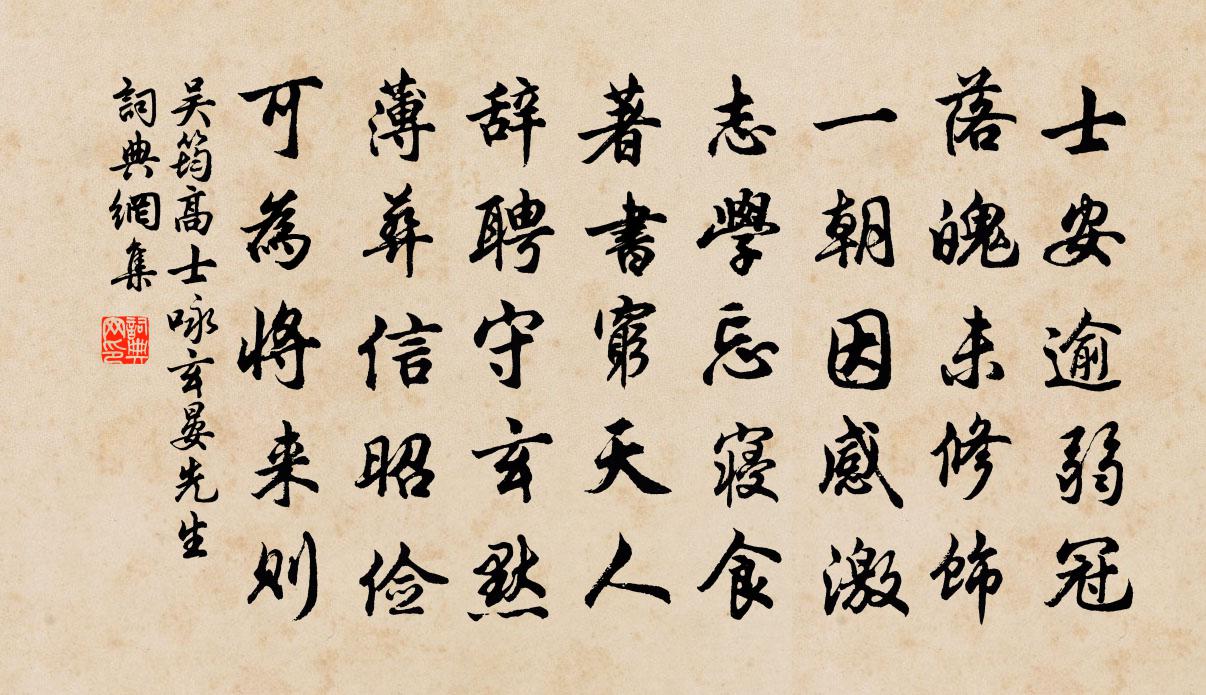 士安逾弱冠
落魄未修飾
一朝因感激
志學忘寝食
著書窮天人
辞聘守玄默
薄葬信昭俭
可為将来则
吴筠高士咏玄晏先生
詞典網集
詞典网印